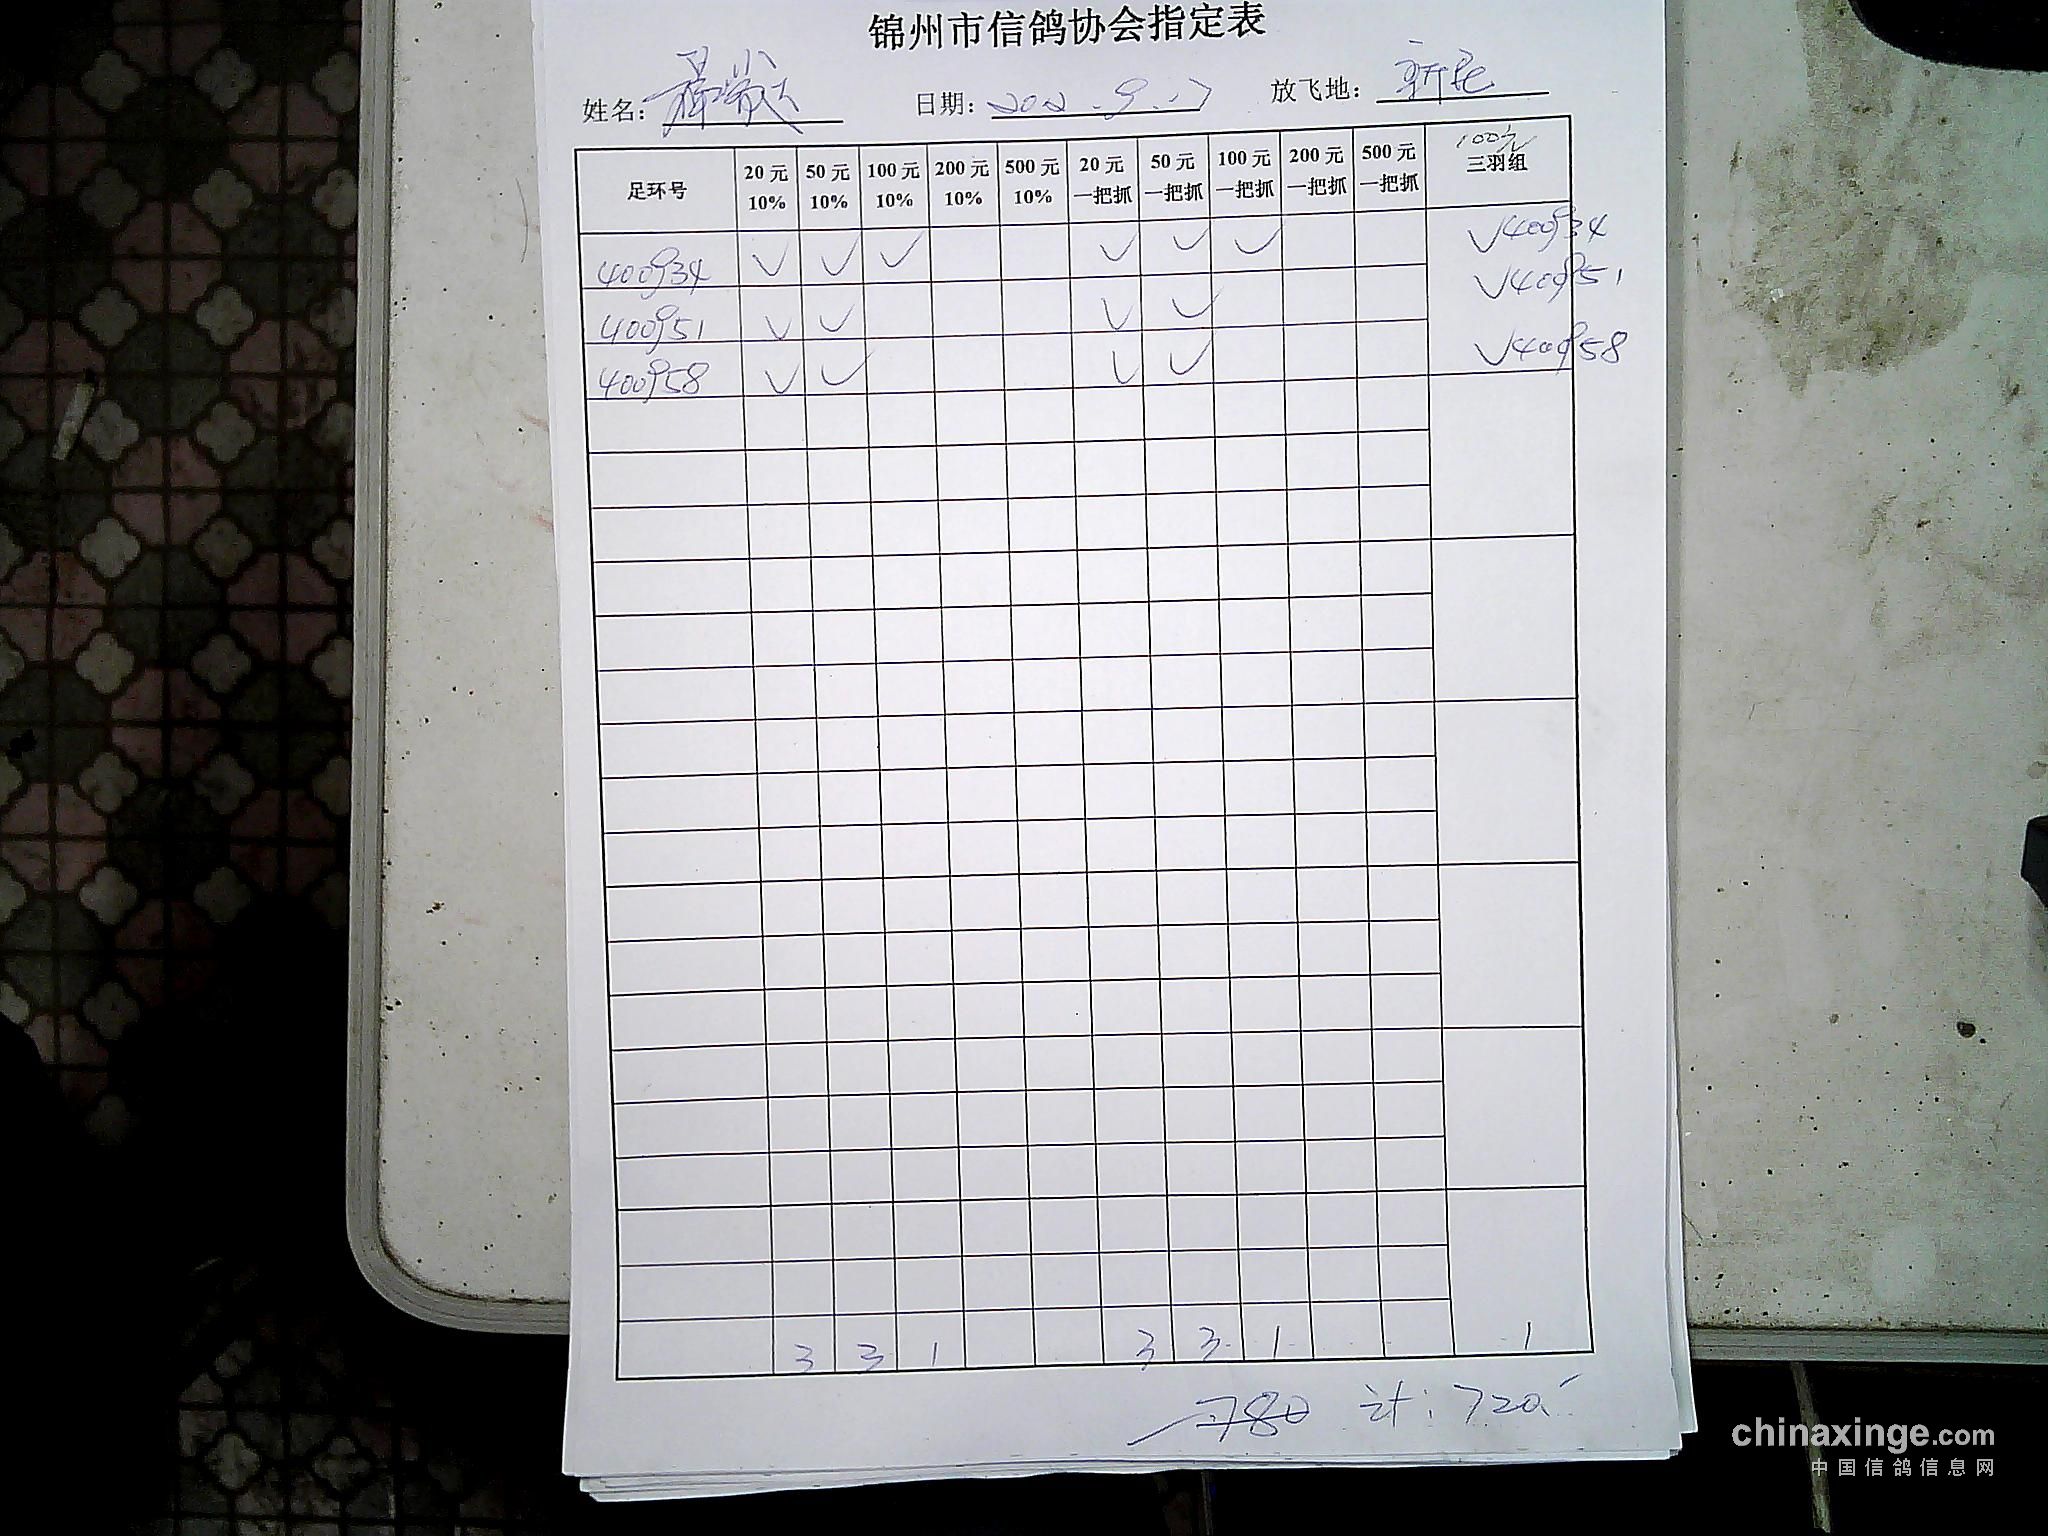 锦州市信鸽协会指定表
姓名: 日期: 放飞地: 新民
足环号 20元 10% 50元 10% 100元 10% 200元 10% 500元 10% 20元 一把抓 50元 一把抓 100元 一把抓 200元 一把抓 500元 一把抓 100元 三羽组
400934 ✓ ✓ ✓ ✓ ✓ ✓ ✓400934
400951 ✓ ✓ ✓ ✓ ✓400951
400958 ✓ ✓ ✓ ✓ ✓400958
3 3 1 3 3 1 1
780 计: 720
chinaxinge.com
中国信鸽信息网